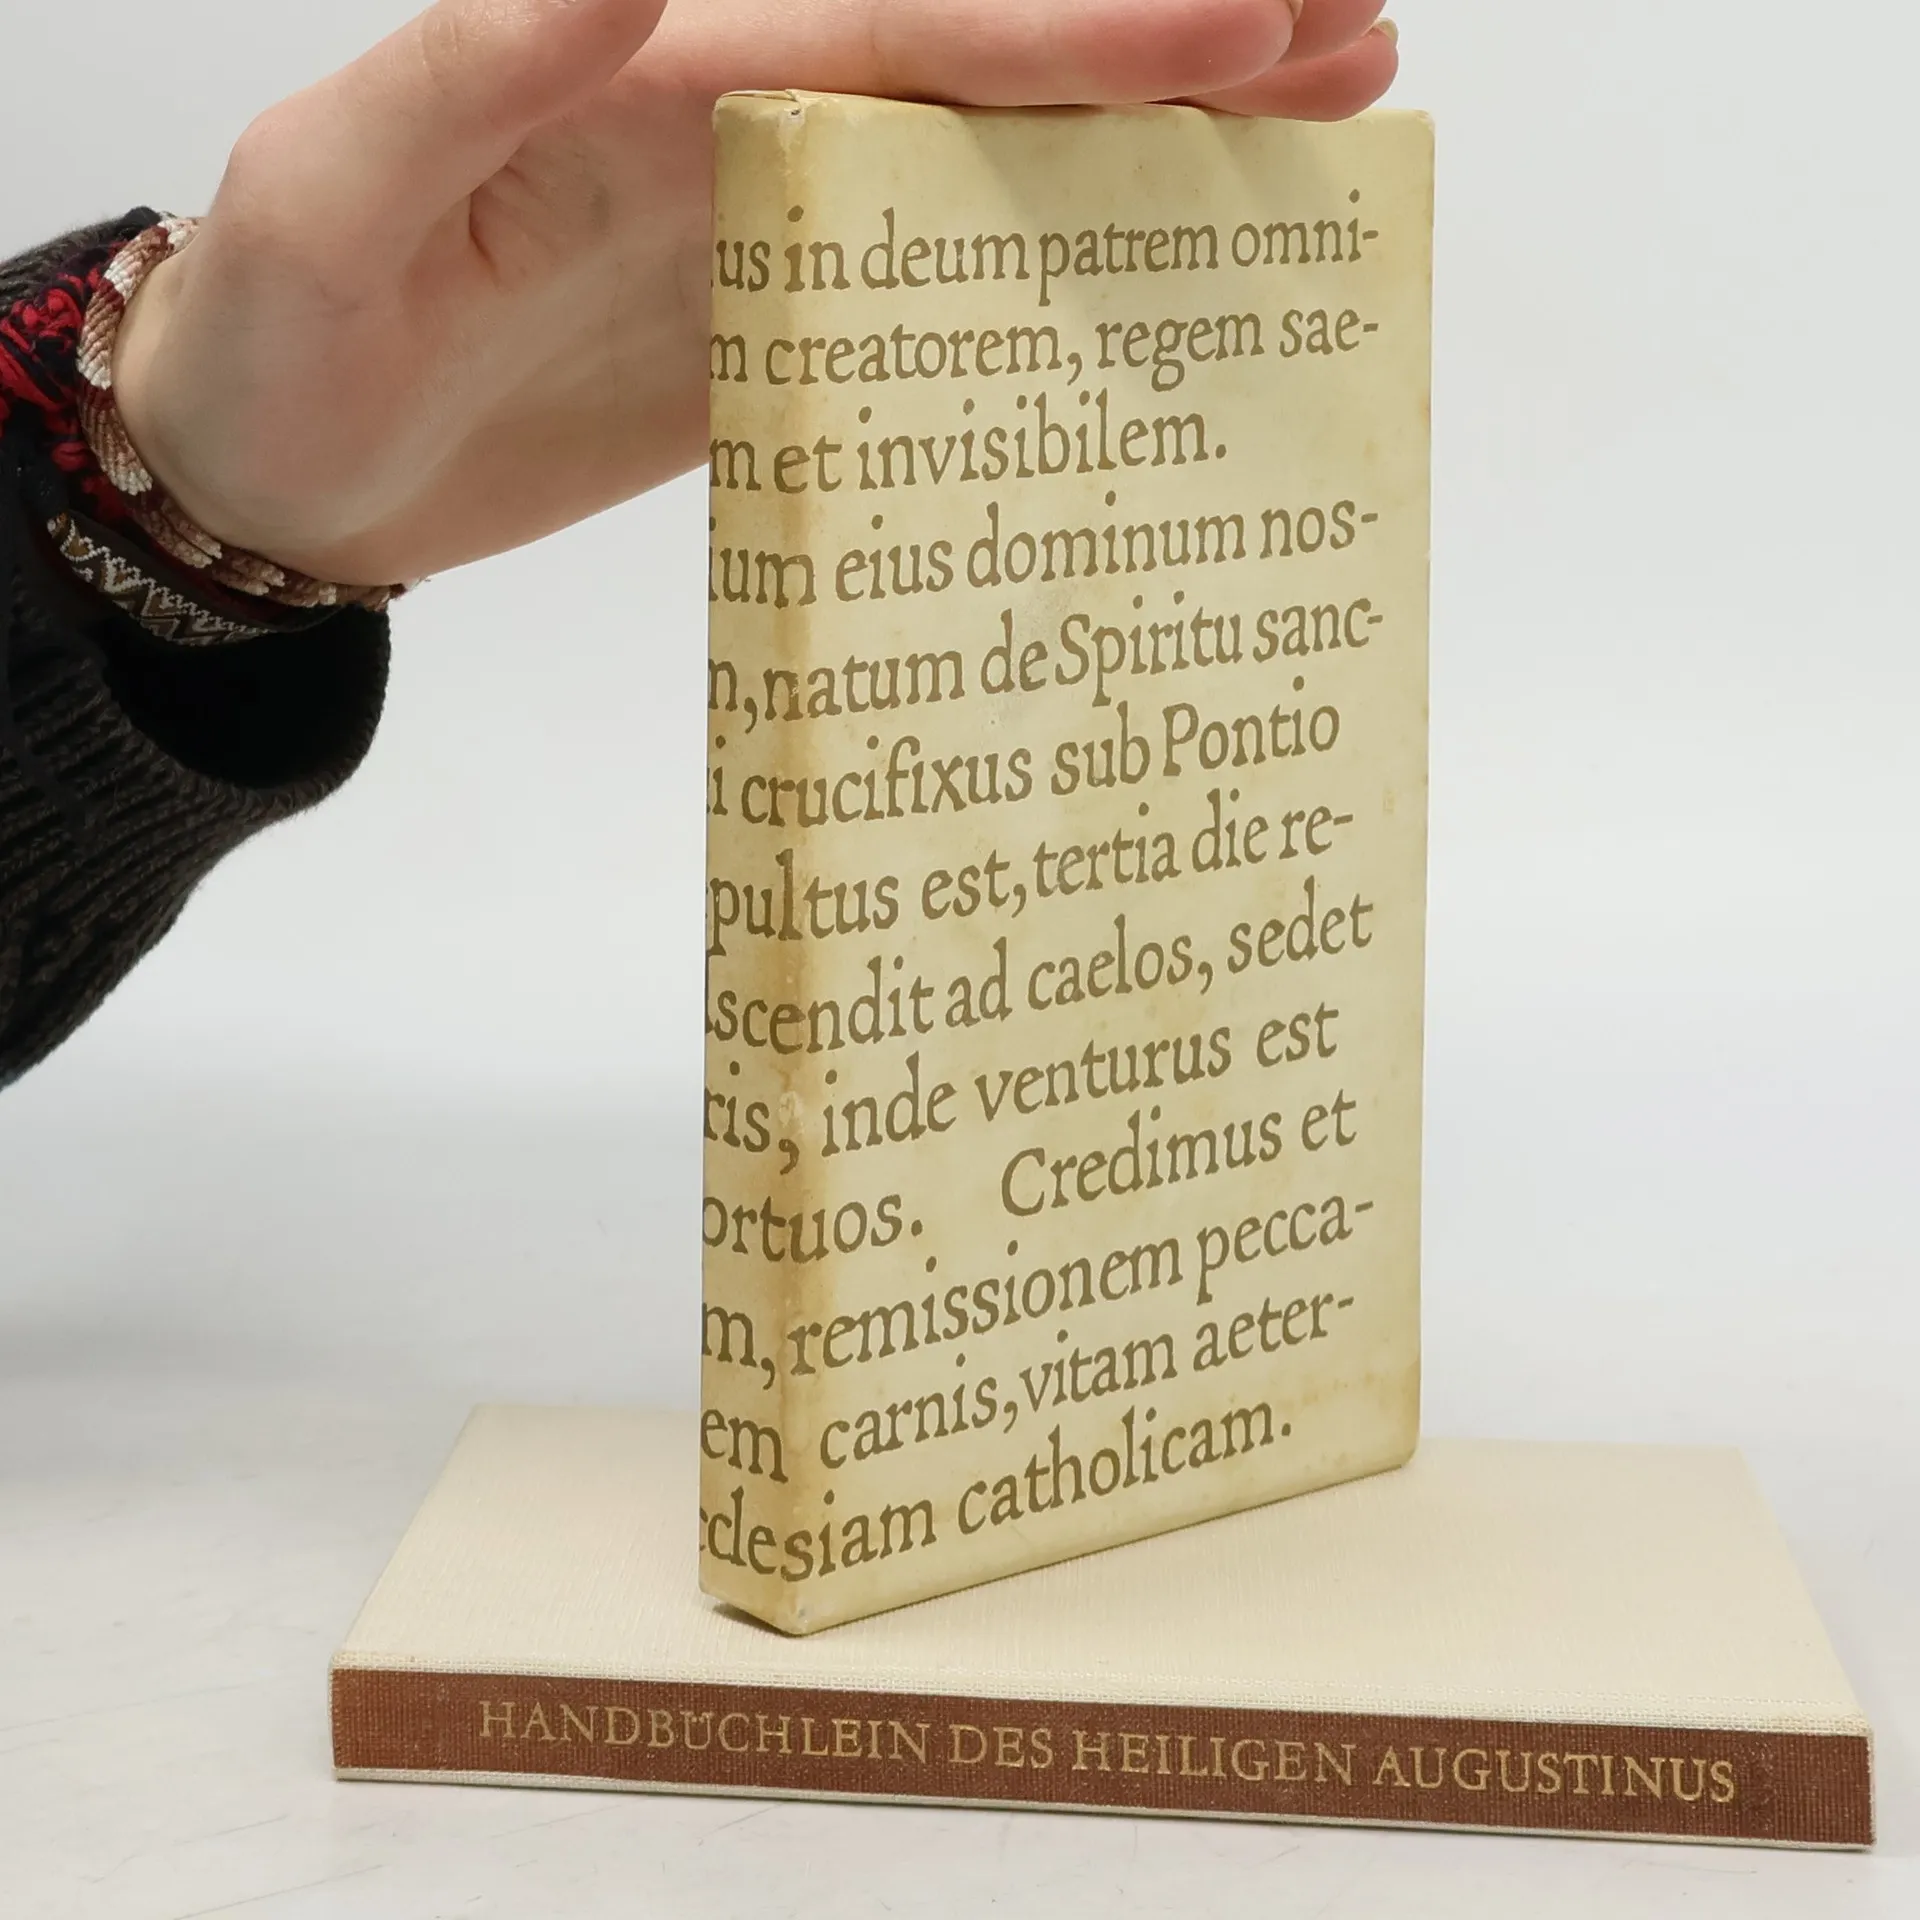 us in deum patrem omni-
m creatorem, regem sae-
m et invisibilem.
ium eius dominum nos-
n, natum de Spiritu sanc-
i crucifixus sub Pontio
pultus est, tertia die re-
scendit ad caelos, sedet
ris, inde venturus est
ortuos. Credimus et
m, remissionem pecca-
em carnis, vitam aeter-
cclesiam catholicam.
HANDBÜCHLEIN DES HEILIGEN AUGUSTINUS